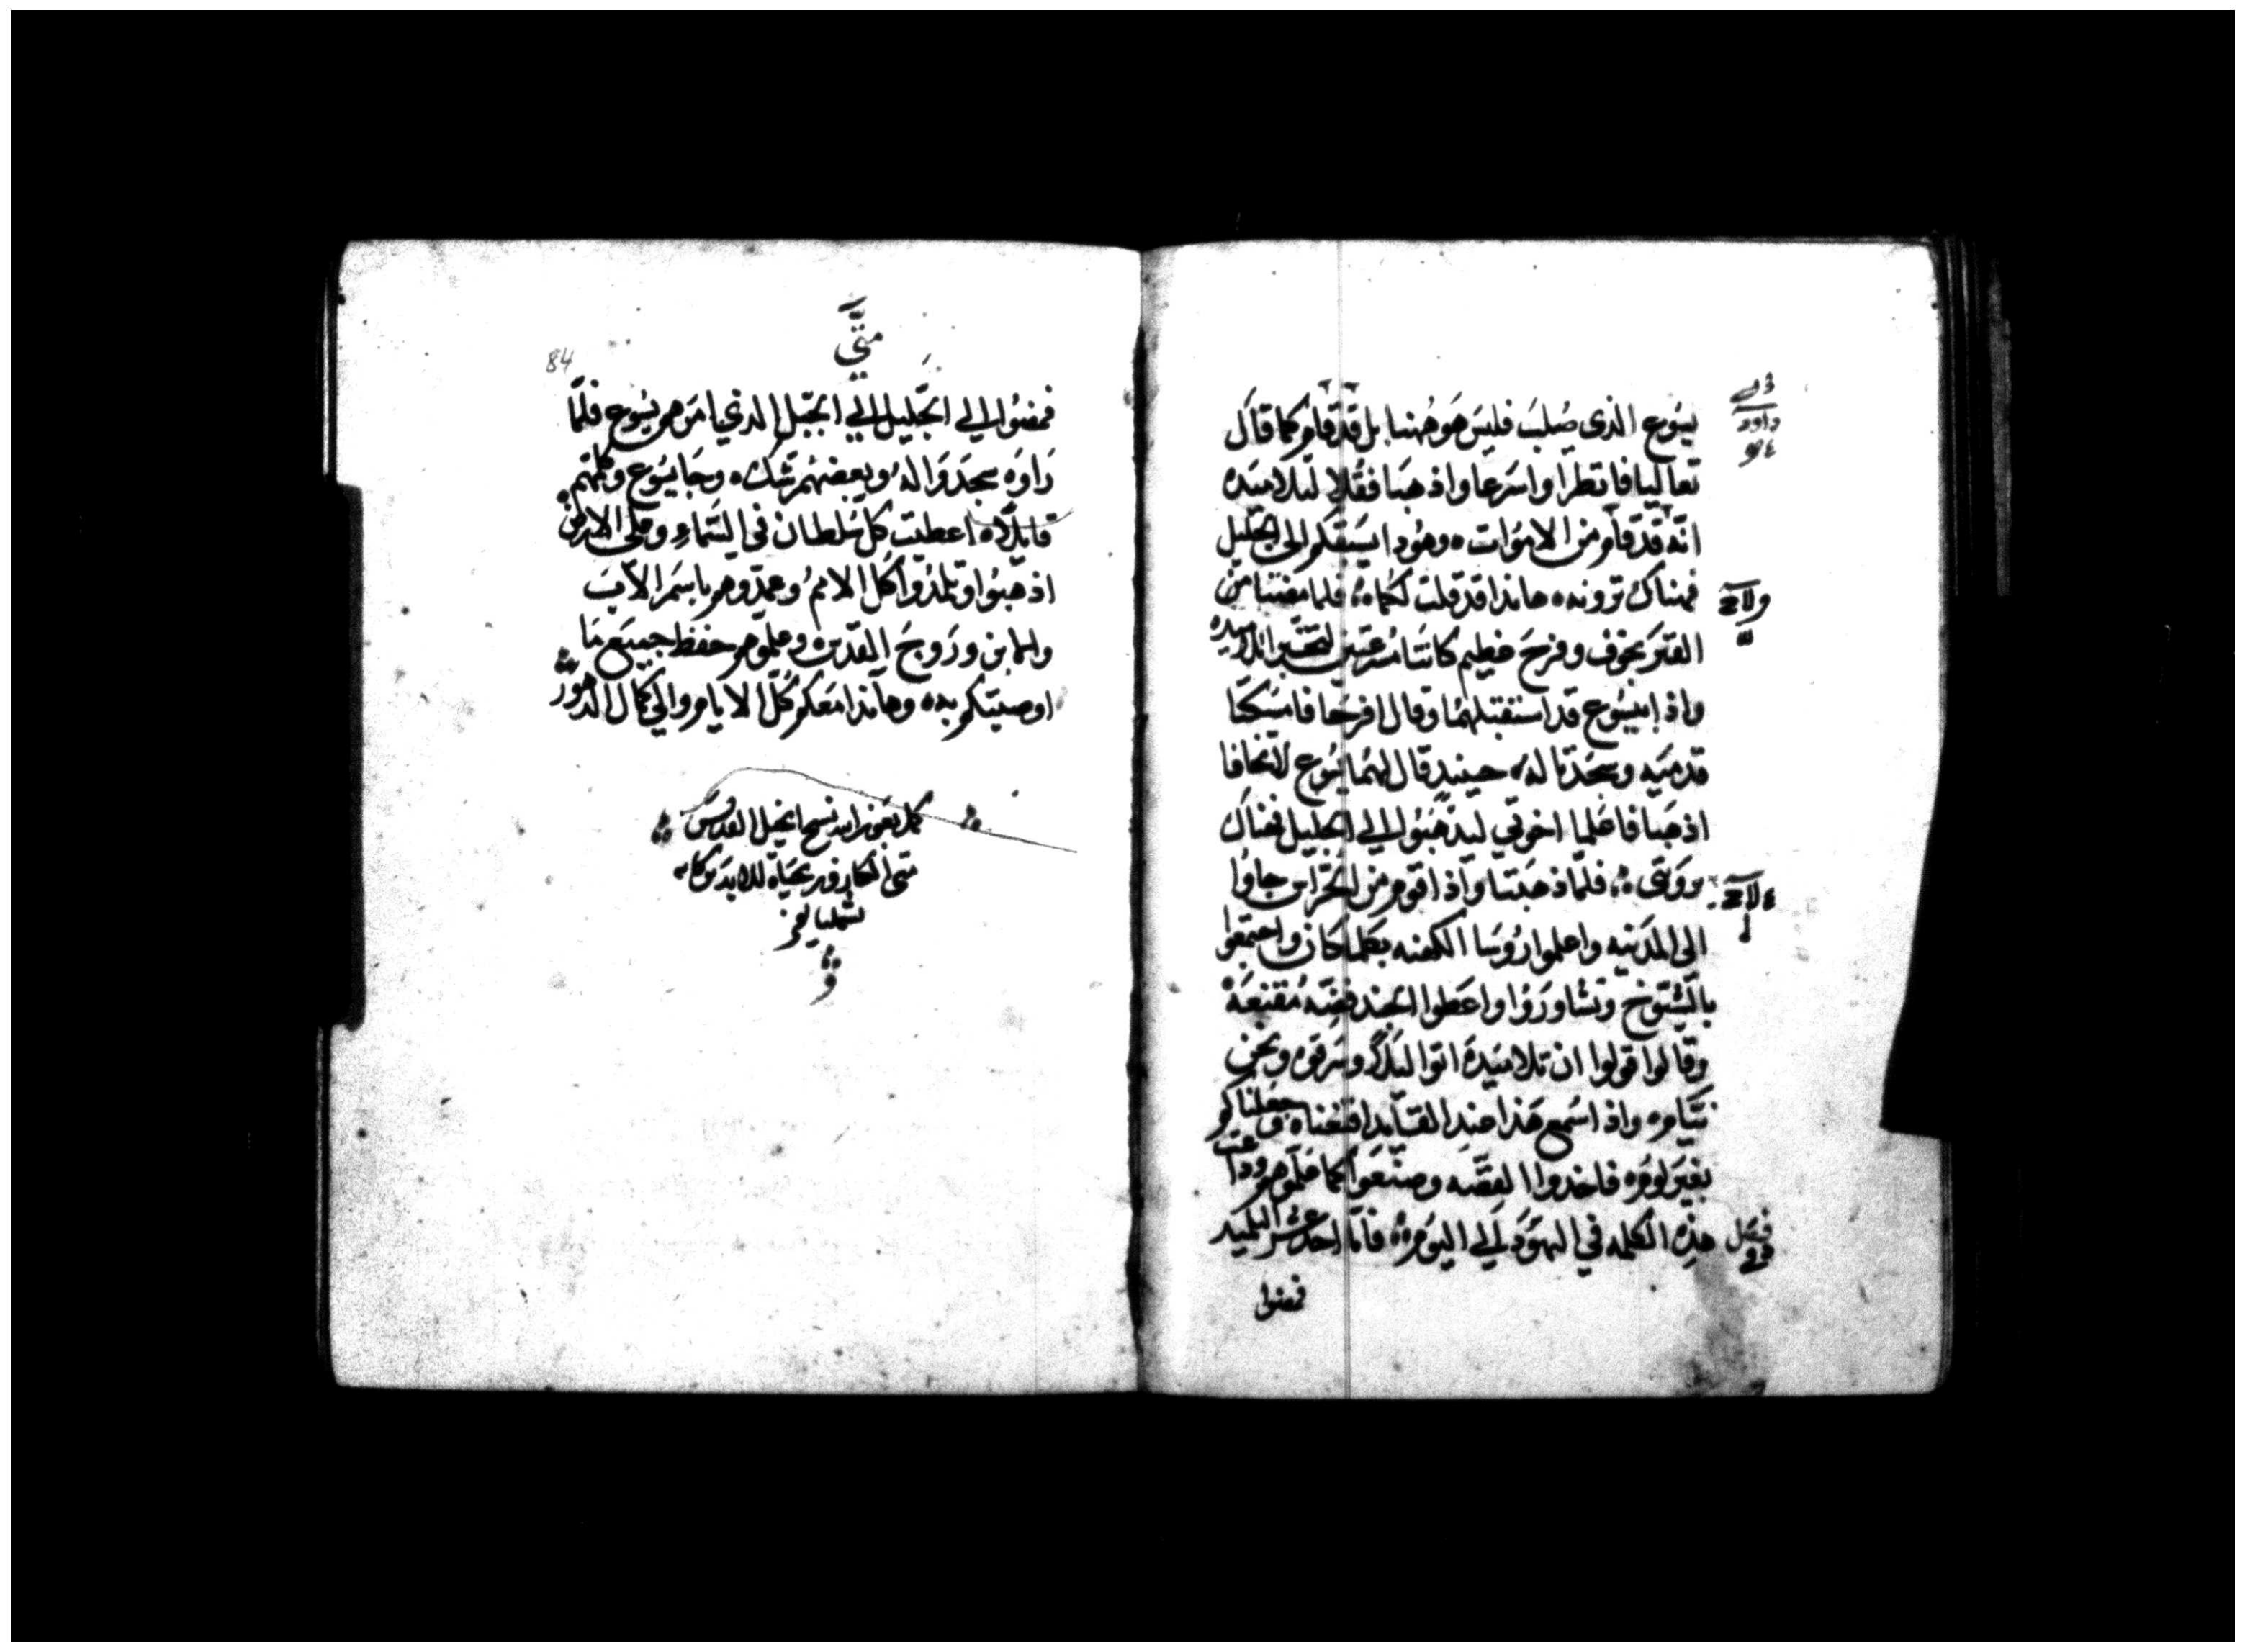 يسوع الذى صُلبَ فليسَ هوَ هُهنا بل قدقام كما قال
تعاليا فانظرا واسرعا واذهبا فقُلا لتلاميَده
انّه قدقام من الاموات ٥ وهُودا يسَبقكم الى الجليل
فهناك ترونه ٥ هانذا قد قلت لكما ٥ فلما مضتا من
القبر بخوف وفرح عظيم كانتا مسرعتين لتخبرا تلاميده
واذا بيسُوع قد استقبلهُما وقال افرحا فامسَكتا
قدميَه وسجَدتا له ٥ حينيدٍ قال لهُما يسُوع لا تخافا
اذهبا فاعلما اخوتي ليدهبُوا الي الجليل فهناك
يروني ٥ فلمّا ذهبَتا واذا قوم من الحرّاس جاوا
الى المدَينه واعلموا رُوسَا الكهنه بكلما كان واجتمعوا
بالشيُوخ وتشاورَوُا واعَطوا الجند فضه مُقنعَة
وقالوا قولوا ان تلاميَدهَ اتوا ليلًا وسَرقوه ونحن
نيَام ٥ واذا سُمع هَذا عند القايد اقنعناه وجعلناكم
بغيَر لوم ٥ فاخدوا الفضّه وصنَعَوا كما علّموهم وداعت
هذه الكلمه في اليهوُد الَي اليوَم ٥ فامّا احدعشر التلميد
فمضوا
ولاح
لاح
فصل
داود
متَّي
84
فمضوا الي الجَليل الي الجبَل الدي امَرهم يسُوع فلمّا
رَاوَه سجدَوَا لهُ وبعضهُم شك ٥ وجَا يسُوع وكلمهم
قايلًا ٥ اعطيت كل سُلطان في السَّماءِ وعلى الارض
اذهبُوا وتلمذُوا كُل الامم وعمّدوهم باسمَ الابَ
والابن ورَوحَ القدس ٥ وعلموهم حفظ جميَع مَا
اوصيتكم به ٥ وهانذا معَكم كُلّ الايام والي كمال الدهور
كمل بعَون الله نسح انجيل القدوسَ